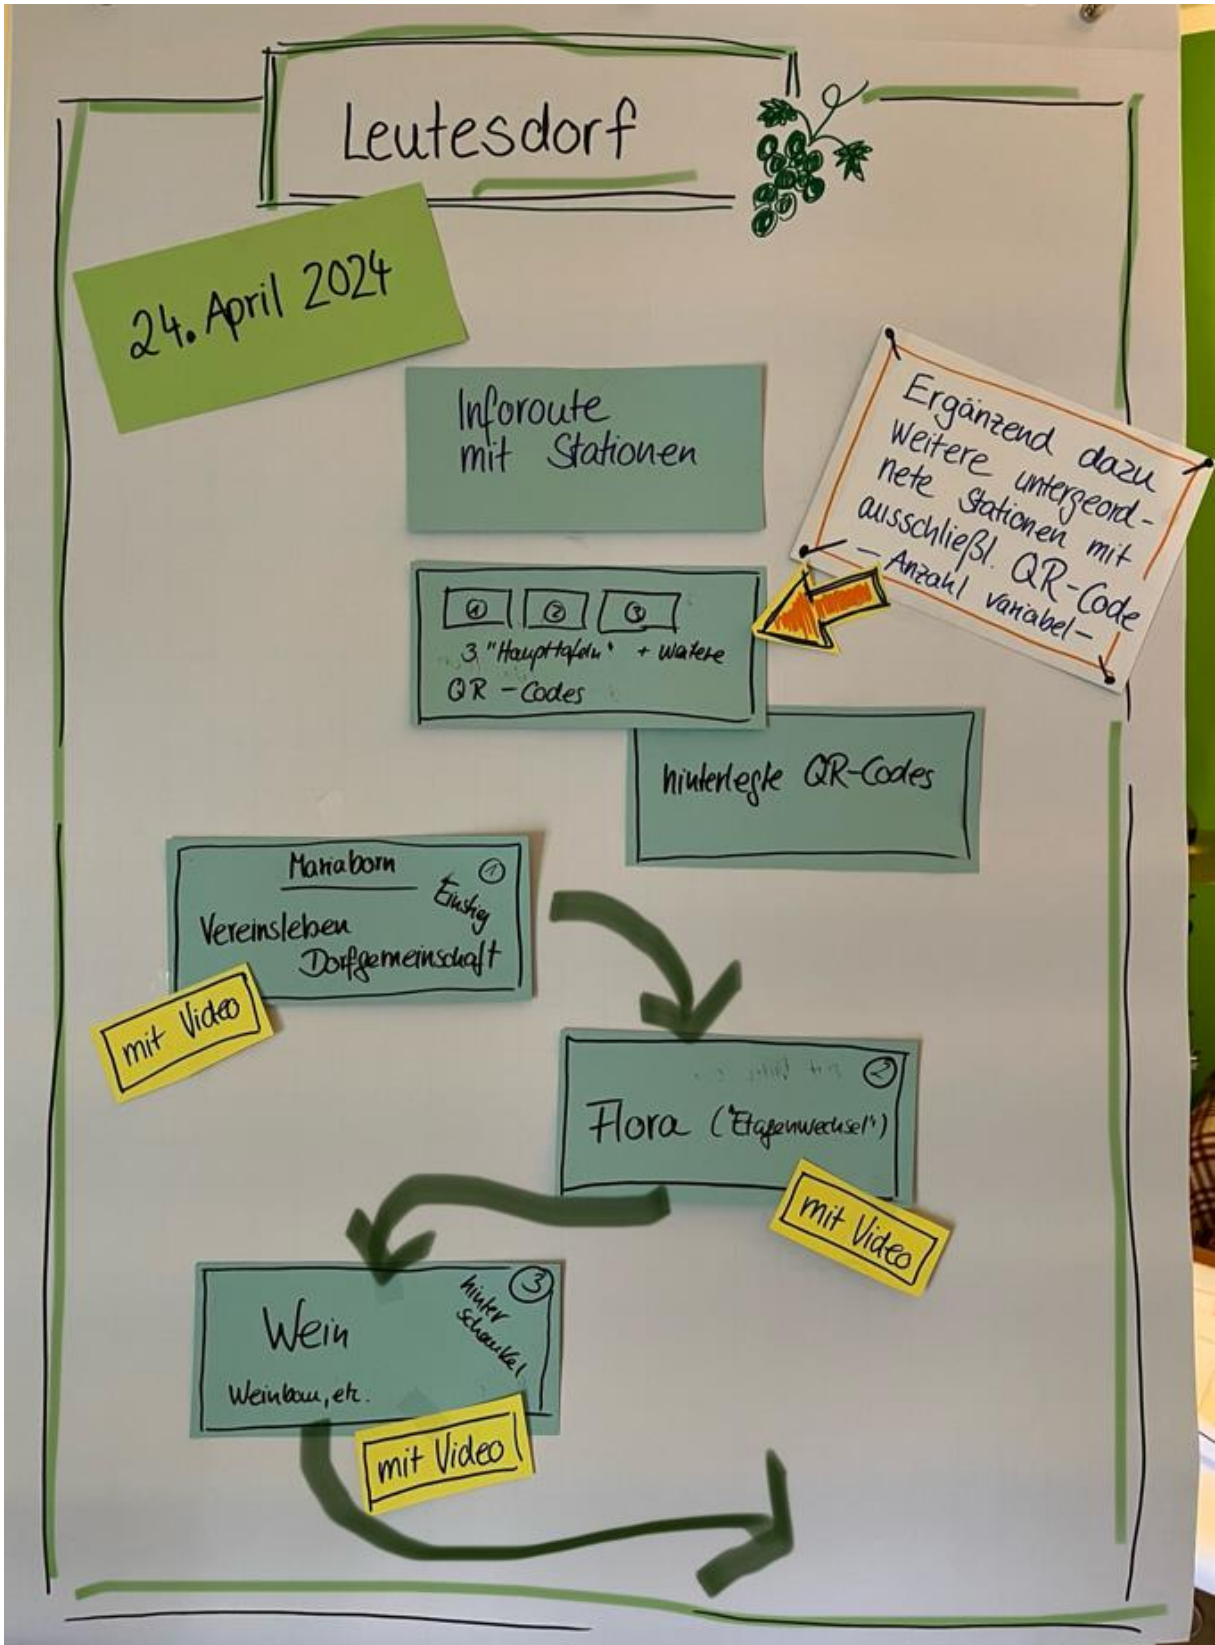 Leutesdorf
24. April 2024
Inforoute
mit Stationen
Ergänzend dazu
weitere untergeord-
nete Stationen mit
ausschließl. QR-Code
- Anzahl variabel -
1 2 3
3 "Haupttafeln" + weitere
QR - Codes
hinterlegte QR-Codes
Mariaborn
1
Einstieg
Vereinsleben
Dorfgemeinschaft
mit Video
2
Flora ("Etagenwechsel")
mit Video
3
hinter
schaukel
Wein
Weinbau, etc.
mit Video